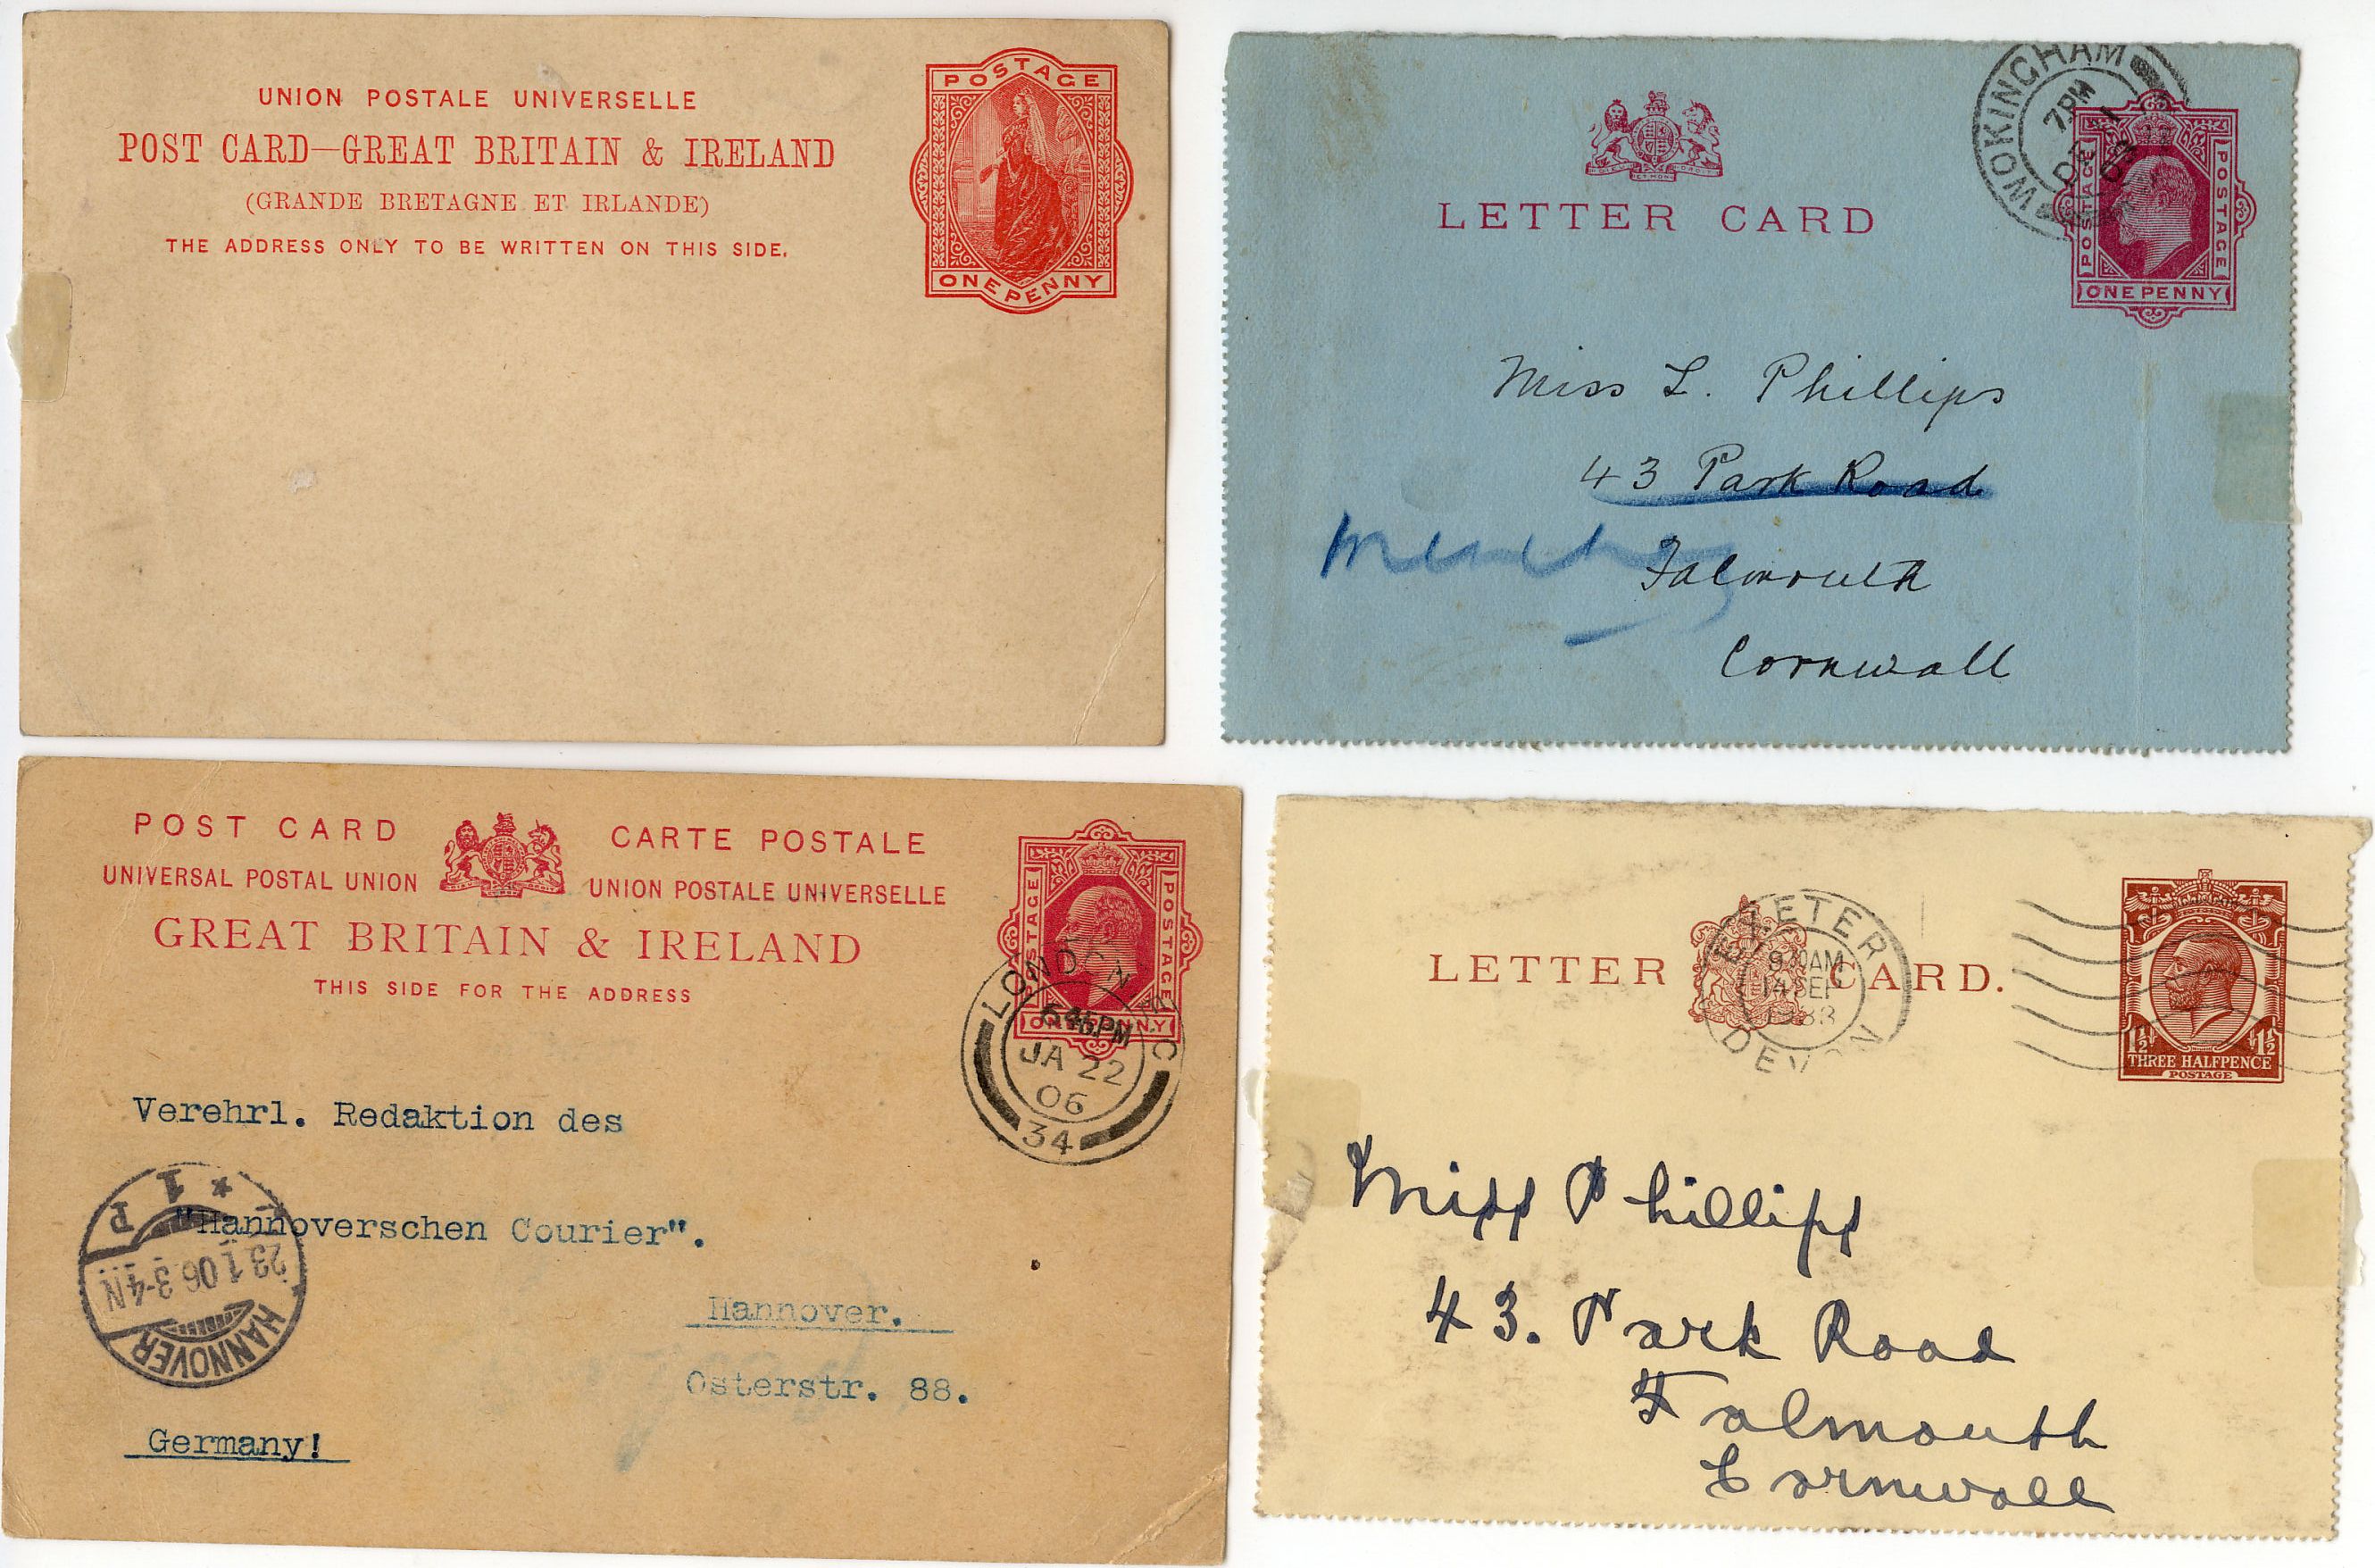 UNION POSTALE UNIVERSELLE
POST CARD—GREAT BRITAIN & IRELAND
(GRANDE BRETAGNE ET IRLANDE)
THE ADDRESS ONLY TO BE WRITTEN ON THIS SIDE.
POSTAGE
ONE PENNY
LETTER CARD
WOKINGHAM
7PM
DE 1
03
POSTAGE
POSTAGE
ONE PENNY
Miss L. Phillips
43 Park Road
Falmouth
Cornwall
POST CARD
CARTE POSTALE
UNIVERSAL POSTAL UNION
UNION POSTALE UNIVERSELLE
GREAT BRITAIN & IRELAND
THIS SIDE FOR THE ADDRESS
POSTAGE
POSTAGE
ONE PENNY
LONDON
6.45PM
JA 22
06
34
Verehrl. Redaktion des
"Hannoverschen Courier".
Hannover.
Osterstr. 88.
Germany!
HANNOVER
23.1.06.3-4N
* 1 P
LETTER CARD.
EXETER
9 30AM
14 SEP
DEVON
1½ 1½
THREE HALFPENCE
POSTAGE
Miss Phillips
43. Park Road
Falmouth
Cornwall